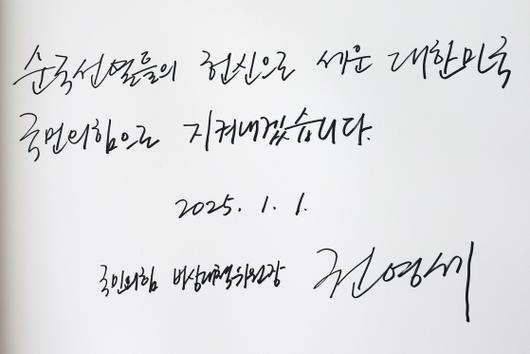 순국선열들의 헌신으로 세운 대한민국
국민의힘으로 지켜내겠습니다.
2025. 1. 1.
국민의힘 비상대책위원장 권영세